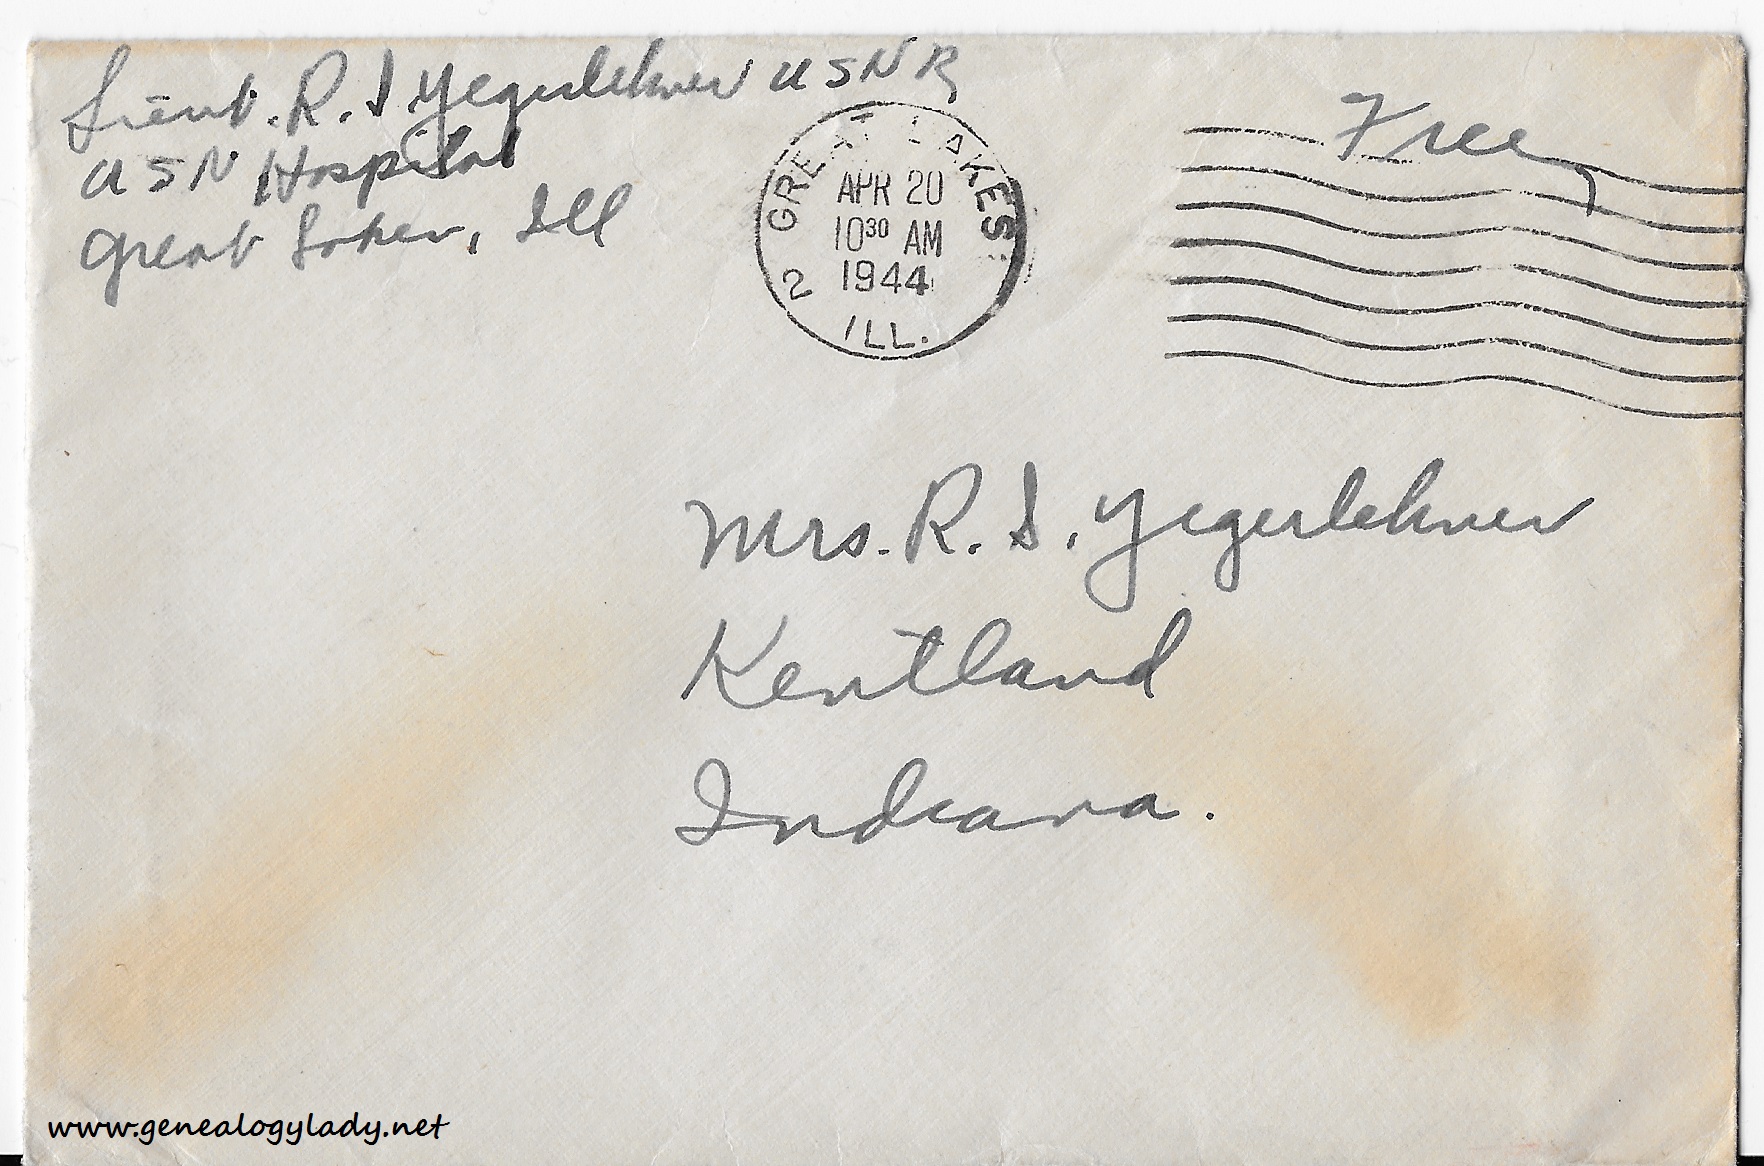 Lieut. R. I Yegerlehner USNR
USN Hospital
Great Lakes, Ill
GREAT LAKES
APR 20
10³⁰ AM
1944
2
ILL.
Free
Mrs. R. I. Yegerlehner
Kentland
Indiana.
www.genealogylady.net